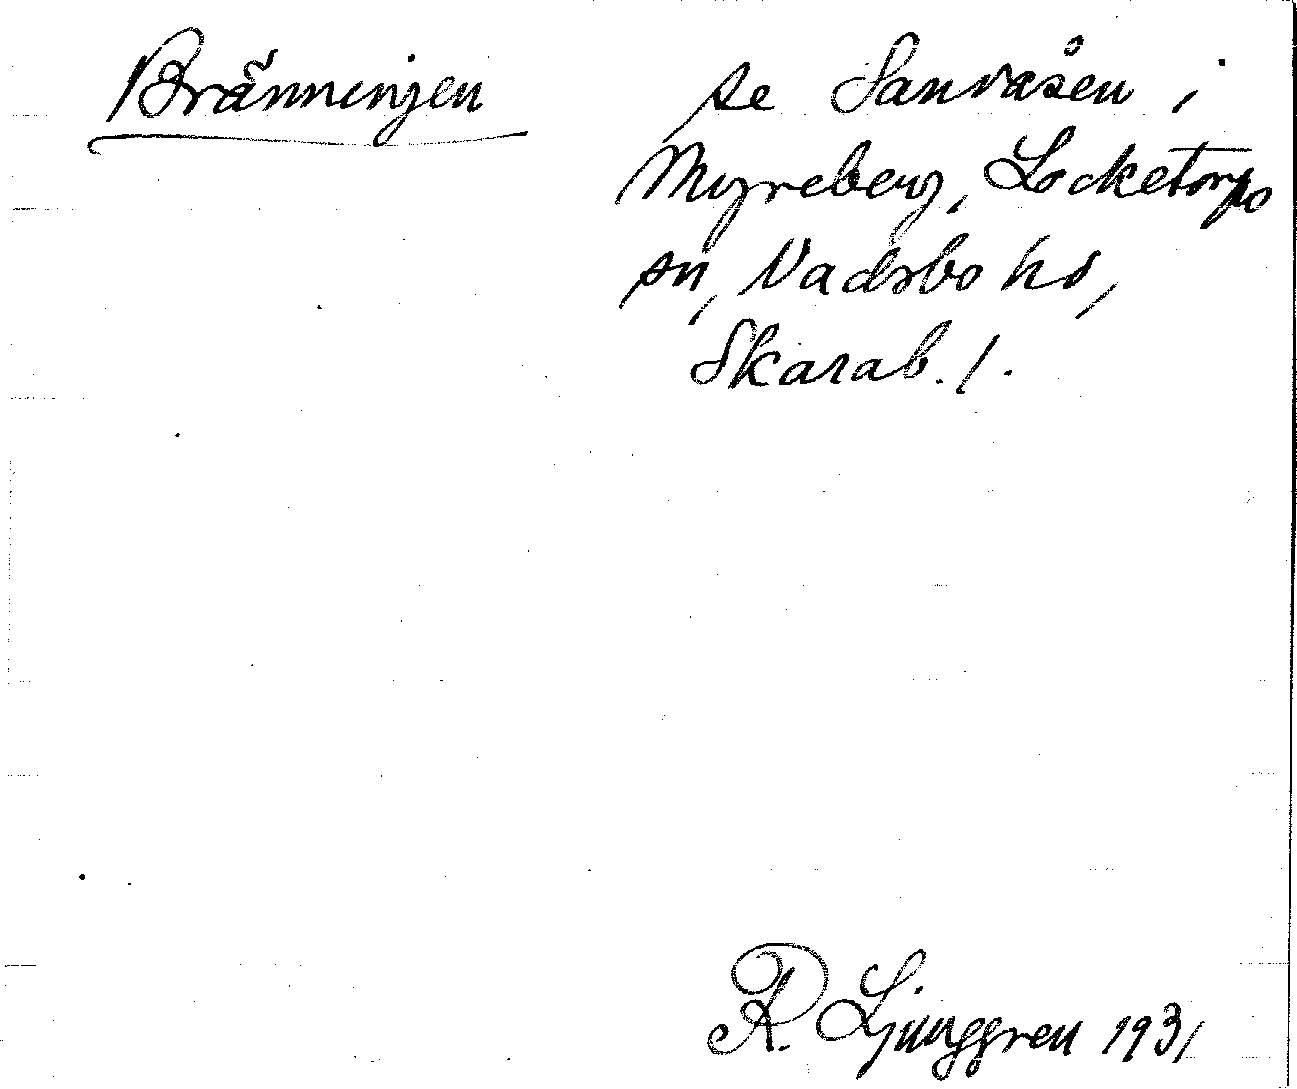 Bränningen
se Sanråsen i
Myreberg, Locketorps
sn, Vadsbo hd,
Skarab. l.
R. Ljunggren 1931